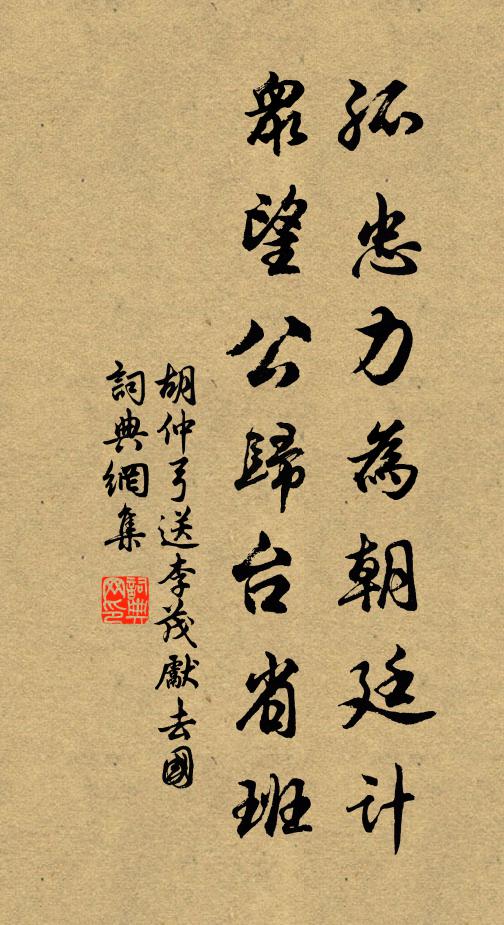 孤忠力為朝廷計
眾望公歸台省班
胡仲弓送李茂獻去國
詞典網集
詞典網印